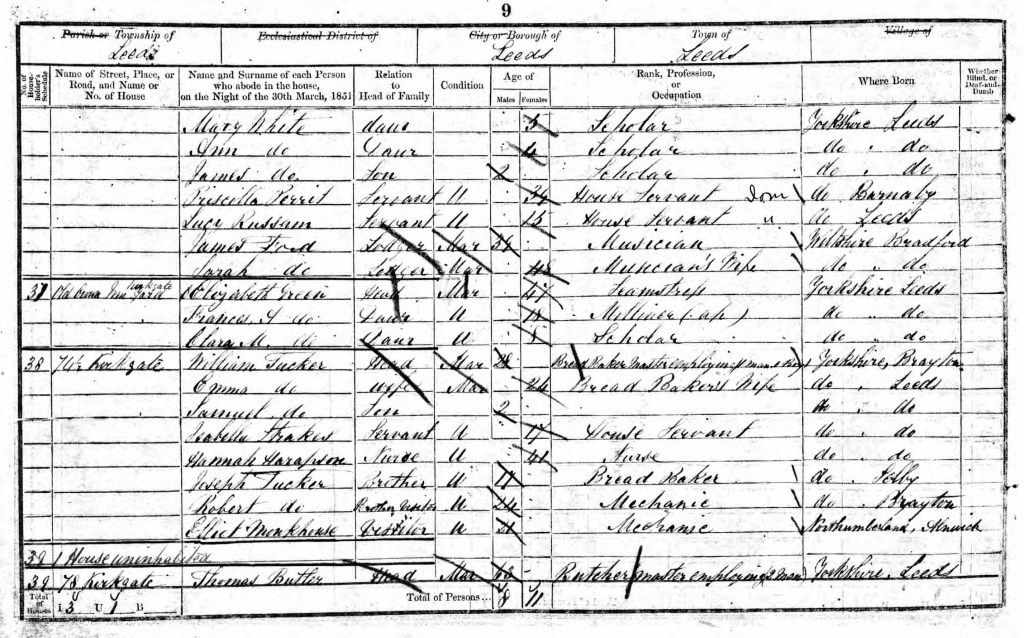 9
Parish or Township of Ecclesiastical District of City or Borough of Town of Village of
Leeds Leeds Leeds
No. of House-holder's Schedule Name of Street, Place, or Road, and Name or No. of House Name and Surname of each Person who abode in the house, on the Night of the 30th March, 1851 Relation to Head of Family Condition Age of Males Females Rank, Profession, or Occupation Where Born Whether Blind, or Deaf-and-Dumb
Mary White daur 5 Scholar Yorkshire Leeds
Ann do Daur 4 Scholar do " do
James do Son 2 Scholar do " do
Priscilla Perrit Servant U 34 House Servant Dom do Barnaby
Lucy Russam Servant U 15 House Servant " do Leeds
James Ford Lodger Mar Musician Wiltshire Bradford
Sarah do Lodger Mar 48 Musician's Wife do " do
37 Old Crown Inn Yard Kirkgate Elizabeth Green Head Mar 47 Seamstress Yorkshire Leeds
Frances S do Daur U 18 Milliner (ap) do " do
Clara M. do Daur U 8 Scholar do " do
38 74½ Kirkgate William Tucker Head Mar 28 Bread Baker Master employing 1 man & boy Yorkshire, Brayton
Emma do Wife Mar 24 Bread Baker's Wife do " Leeds
Samuel do Son 2 do " do
Isabella Strakes Servant U 17 House Servant do " do
Hannah Harapson Nurse U 41 Nurse do " do
Joseph Tucker Brother U 17 Bread Baker do " Selby
Robert do Brother Visitor U 24 Mechanic do " Brayton
Elliot Monkhouse Visitor U 21 Mechanic Northumberland, Alnwick
39 1 House uninhabited
39 78 Kirkgate Thomas Butler Head Mar 63 Butcher master employing (2 man) Yorkshire, Leeds
Total of Houses I 3 U 1 B Total of Persons... 8 11